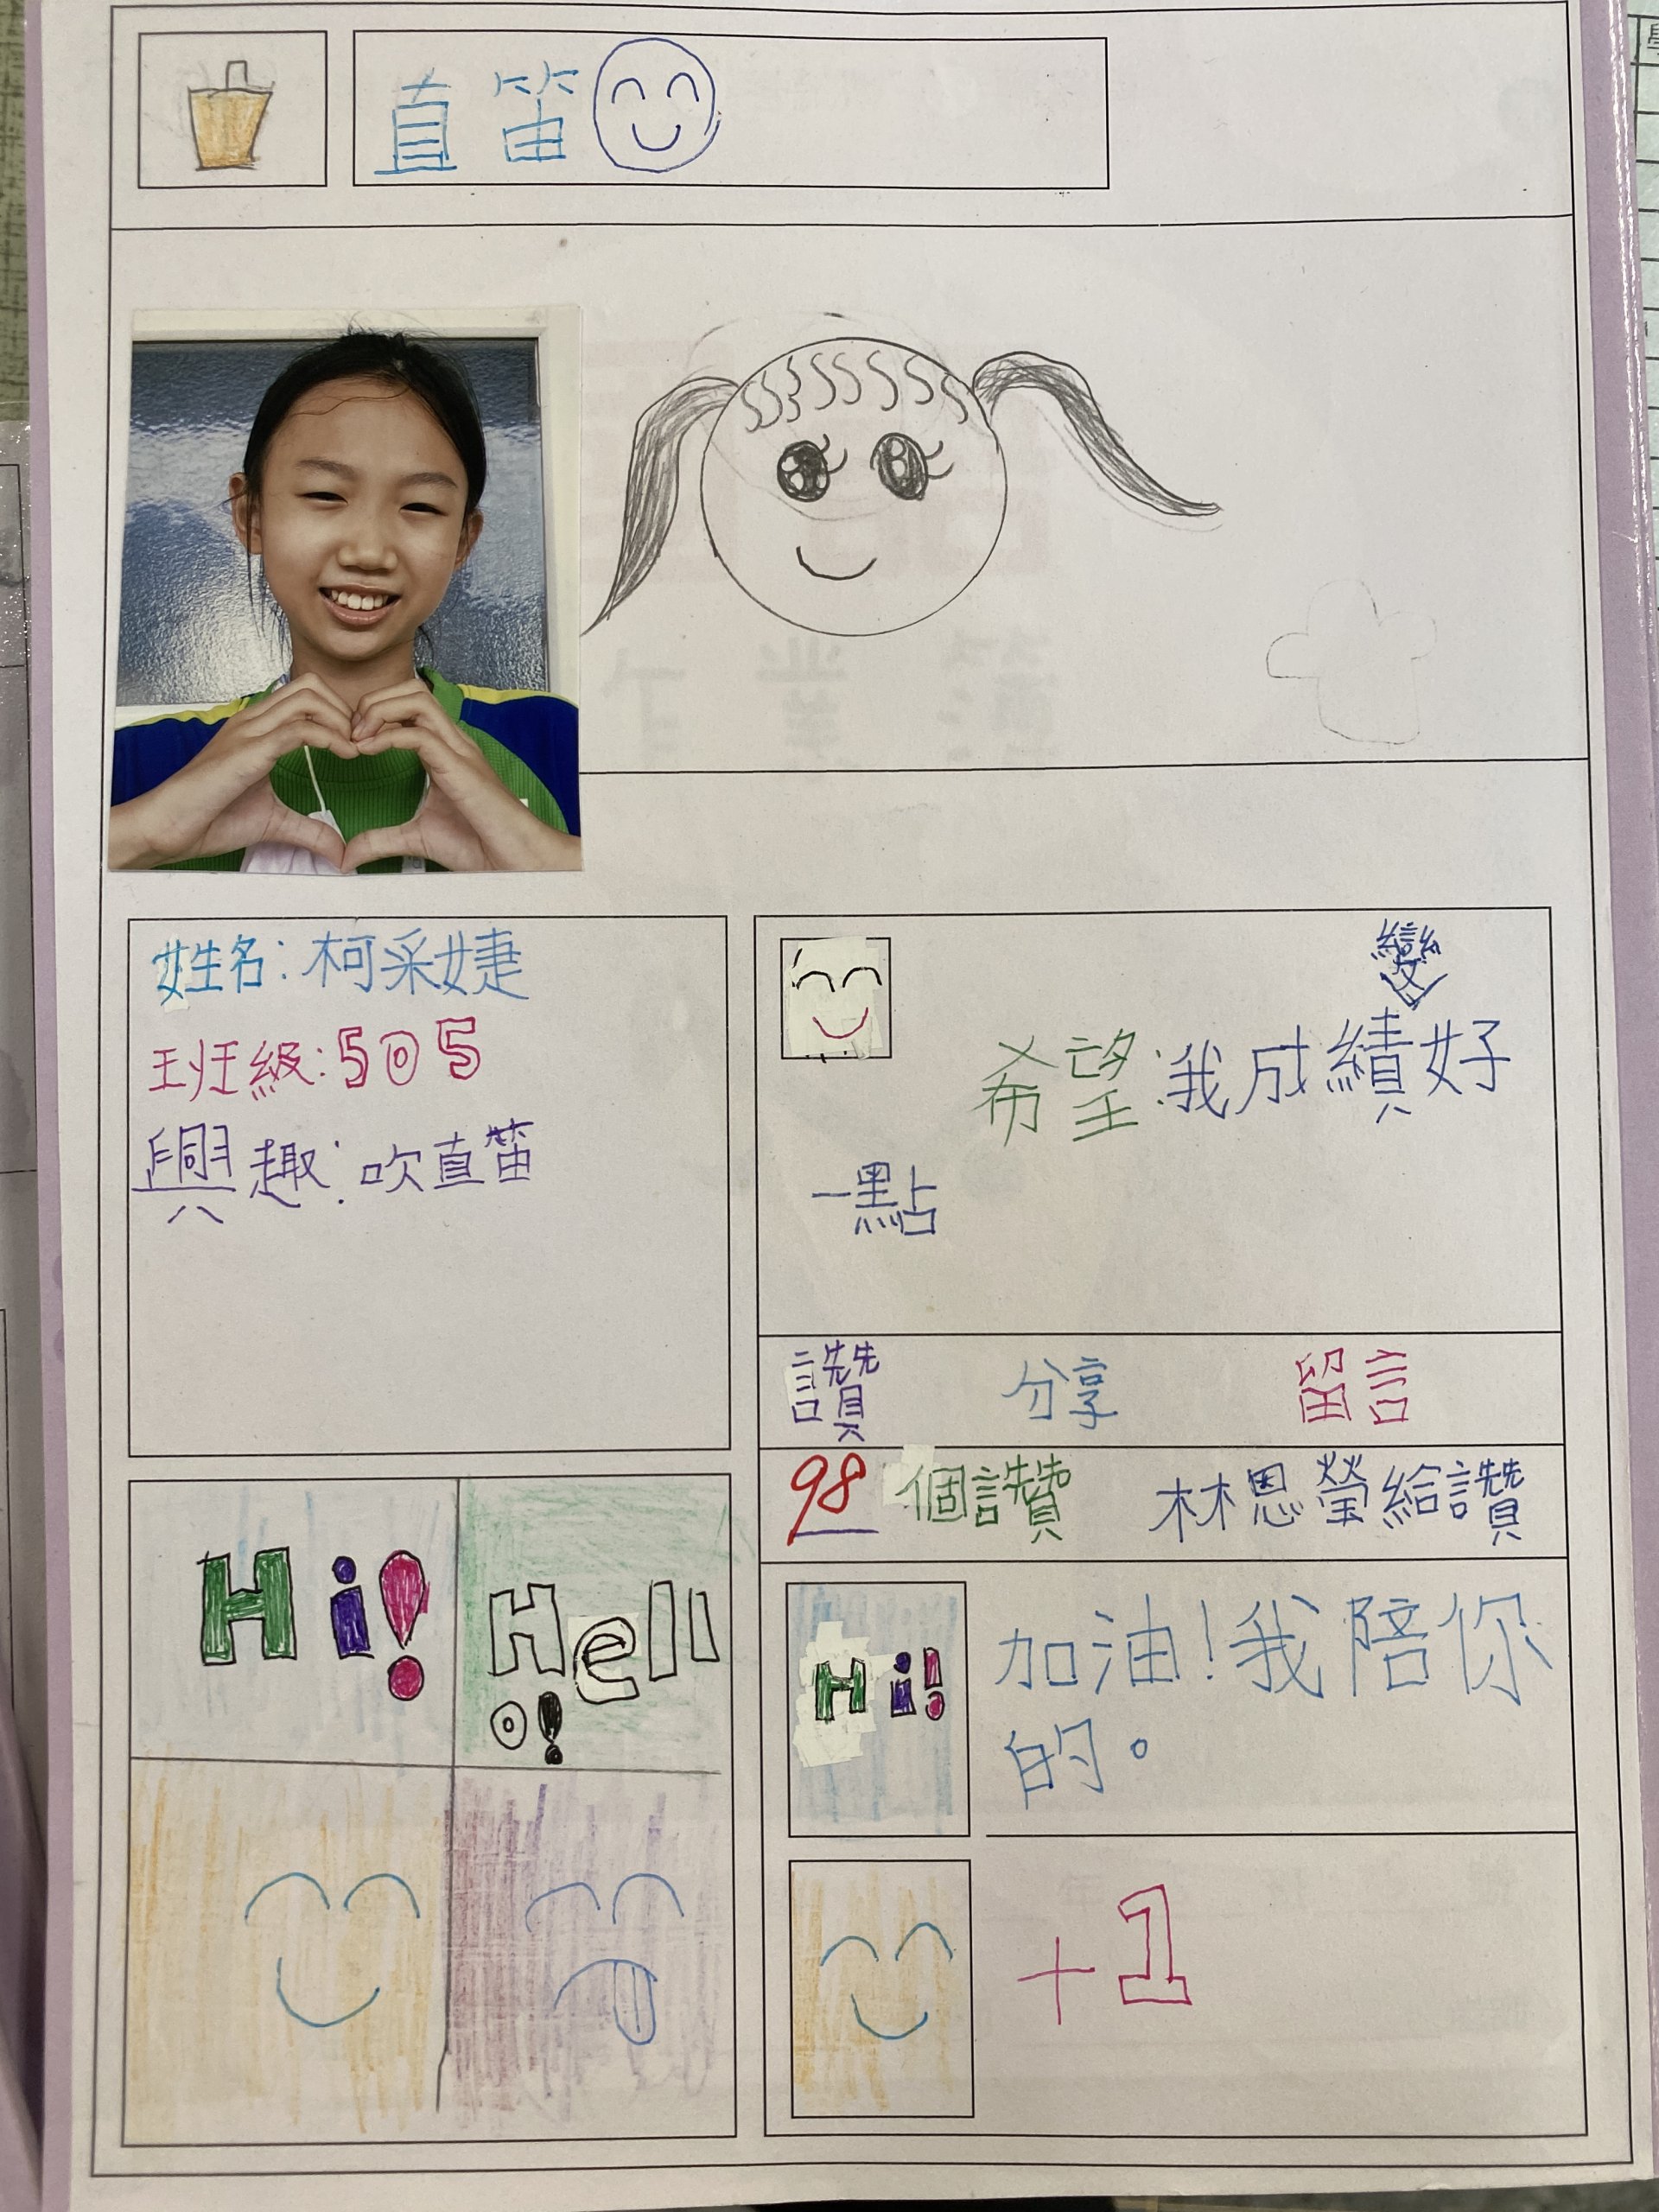 直笛
姓名:柯采婕
班級:505
興趣:吹直笛
變
希望:我成績好
一點
讚 分享 留言
98 個讚 林恩瑩給讚
Hi!
Hell
o!
Hi!
加油!我陪你
的。
+1